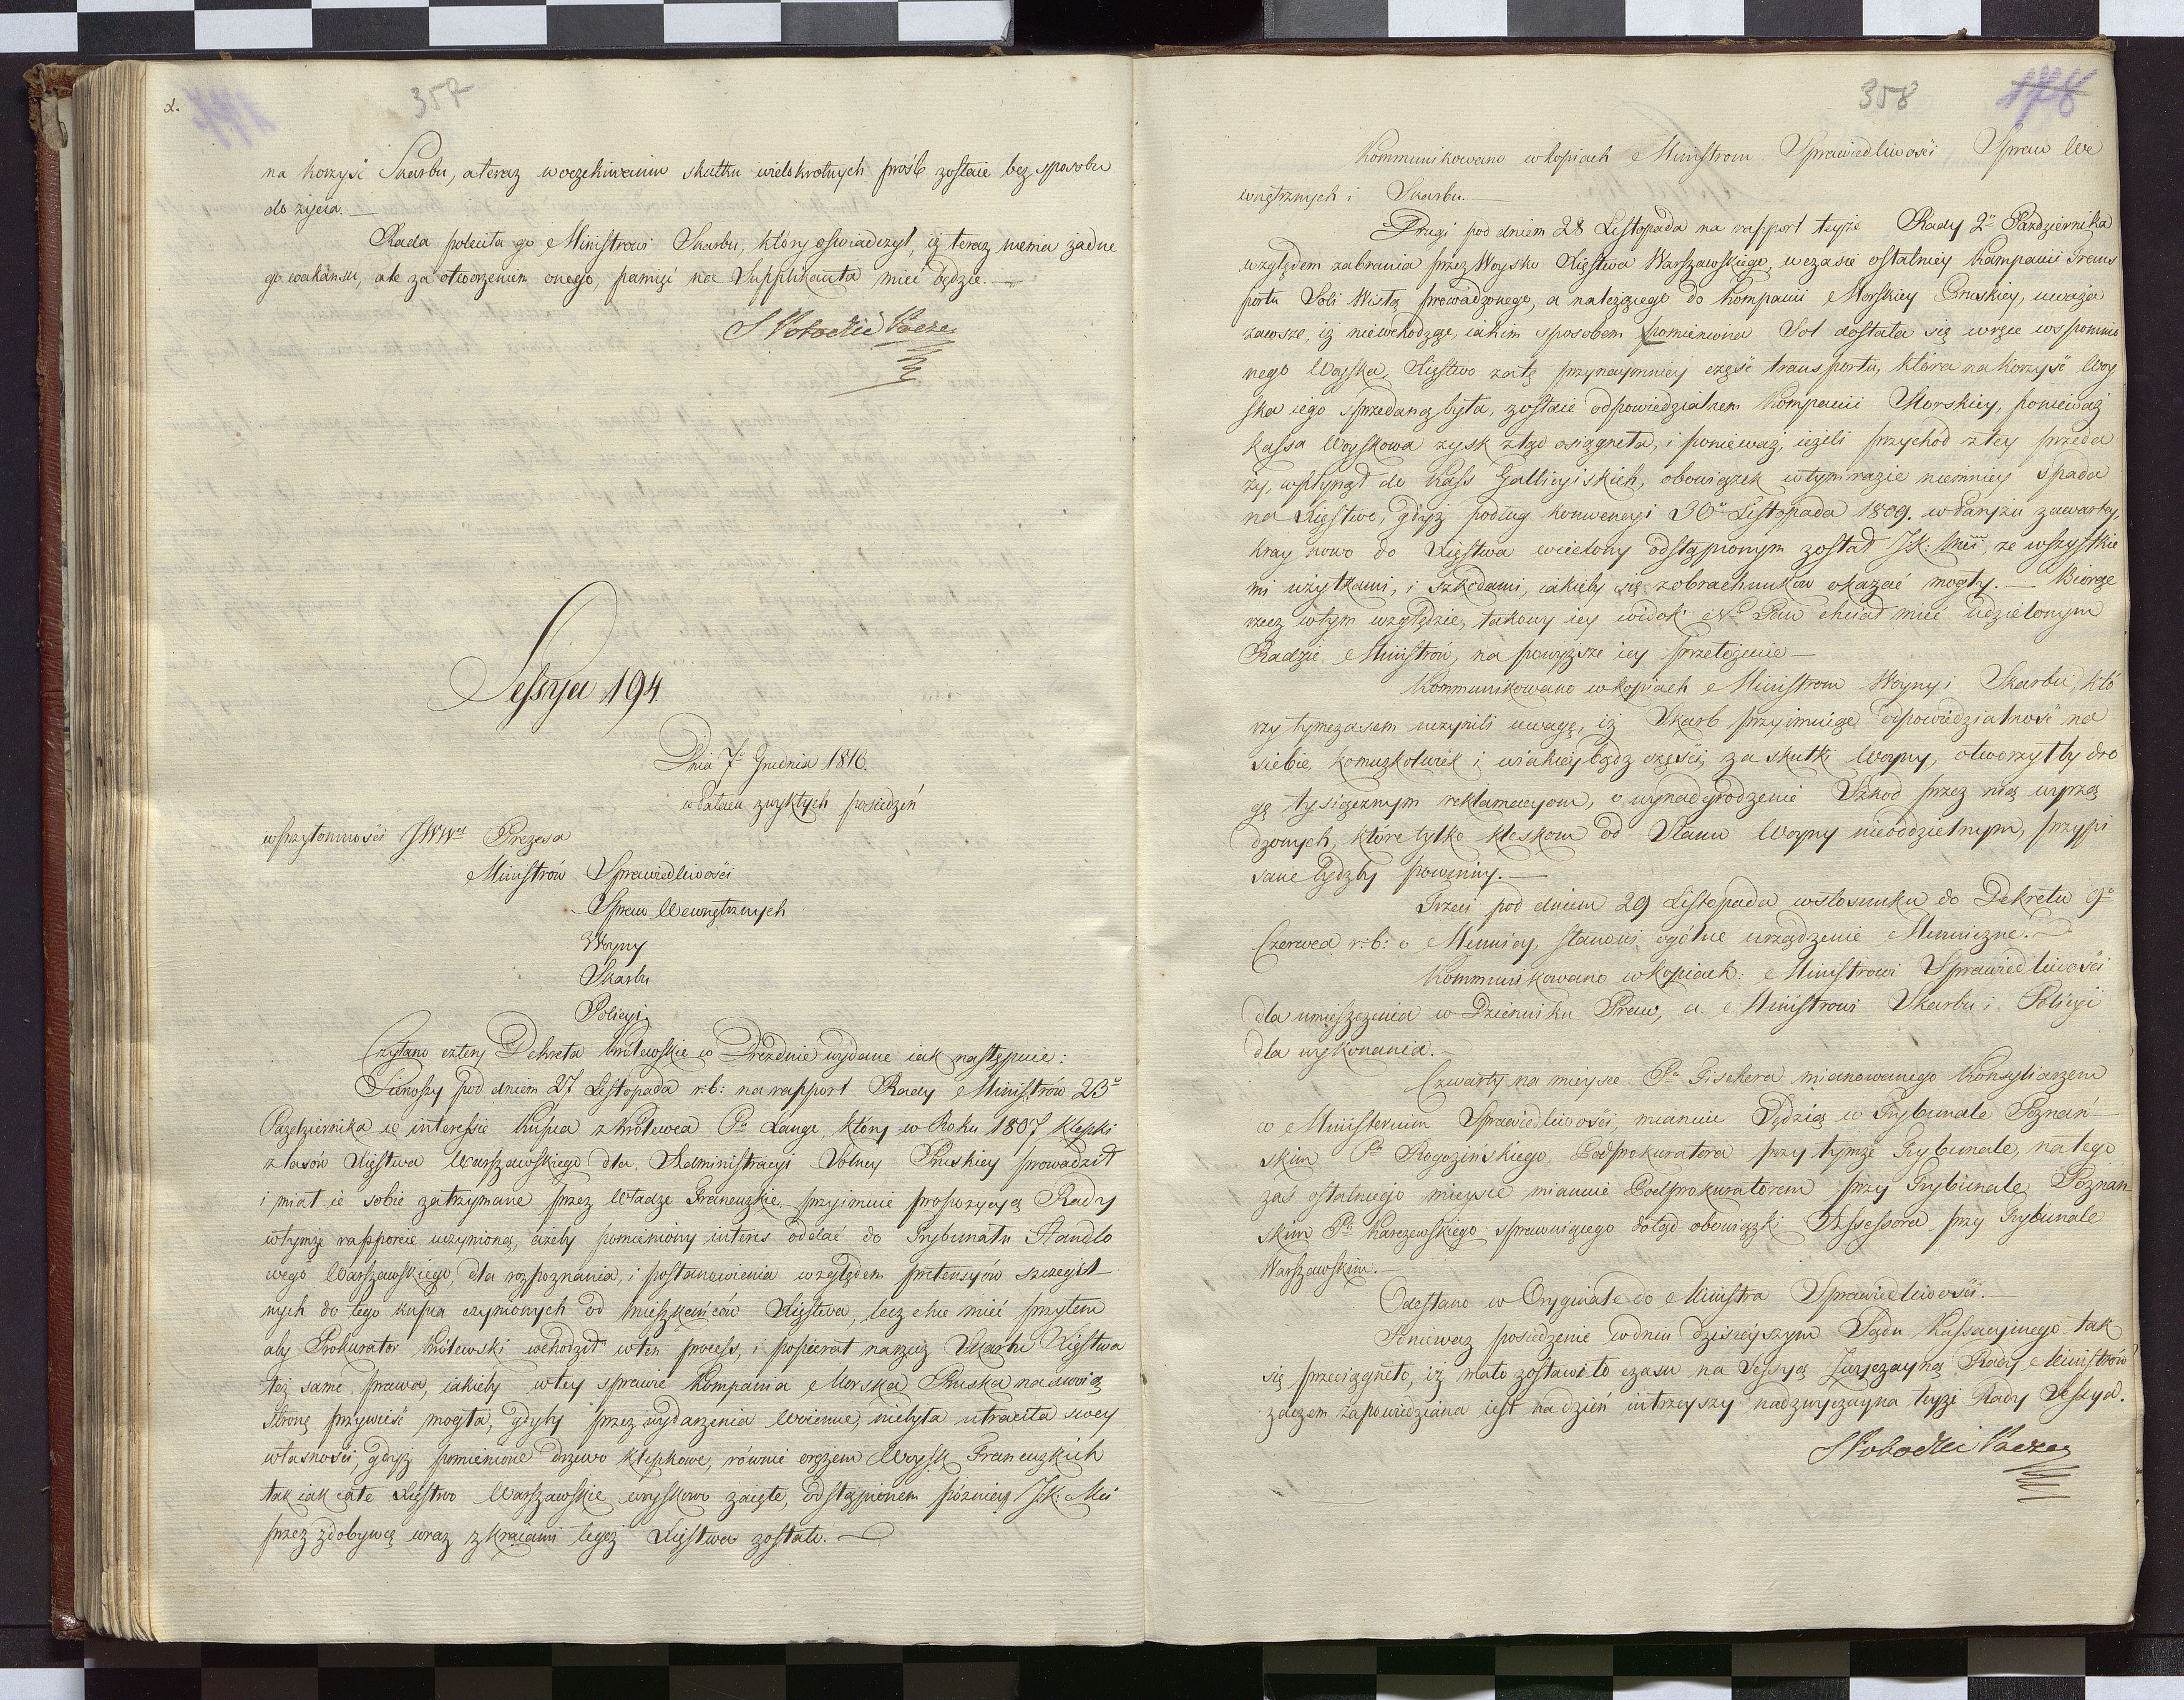 2.
357
na korzyść Skarbu, a teraz w oczekiwaniu skutku wielokrotnych próśb zostaie bez sposobu
do życia. —
Rada poleciła go Ministrowi Skarbu, który oświadczył, iż teraz niema żadne
go wakansu, ale za otworzeniem onego, pamięć na Supplikanta mieć będzie. —
S Potocki Prezes
Sessya 194.
Dnia 7º Grudnia 1810.
w Pałacu zwykłych posiedzeń
w Przytomności JWWch Prezesa
Ministrów Sprawiedliwości
Spraw Wewnętrznych
Woyny
Skarbu
Policyi
Czytano cztery Dekreta Królewskie w Dreznie wydane iak następuie:
Pierwszy pod dniem 27 Listopada r: b: na rapport Rady Ministrów 23º
Października w interessie Kupca z Królewca Pa Lange, który w Roku 1807 klepki
z lasów Xięstwa Warszawskiego dla Administracyi Solney Pruskiey prowadził
i miał ie sobie zatrzymane przez Władze Francuzkie, przyimuie propozycyą Rady
w tymże rapporcie uczynioną, ażeby pomieniony interes oddać do Trybunału Handlo
wego Warszawskiego, dla rozpoznania, i postanowienia względem pretensyów szczegól
nych do tego kupca czynionych od mieszkańców Xięstwa, lecz chce mieć przytem
aby Prokurator Królewski wchodził w ten process, i popierał na rzecz Skarbu Xięstwa
też same prawa, iakieby w tey sprawie Kompania Morska Pruska na swoią
stronę przywieść mogła, gdyby przez wydarzenia Woienne, niebyła utraciła swey
własności, gdyż pomienione drzewo klepkowe, równie orężem Woysk Francuzkich
tak iak całe Xięstwo Warszawskie wryskowo zaięte, odstąpionem później JK: Mci
przez zdobywcę wraz z kraiami tegoż Xięstwa zostało. —
358
178
Kommunikowano w kopiach Ministrom Sprawiedliwości, Spraw We
wnętrznych i Skarbu. —
Drugi pod dniem 28 Listopada na rapport teyże Rady 2º Października
względem zabrania przez Woysko Xięstwa Warszawskiego, w czasie ostatniey Kampanii Trans
portu Soli Wisłą prowadzonego, a należącego do Kompanii Morskiey Pruskiey, uważa
zawsze, iż niewchodząc, iakim sposobem pomieniona Sol dostała się w ręce wspomnio
nego Woyska, Xięstwo za tę przynaymniey część transportu, która na korzyść Woy
ska iego sprzedaną była, zostaie odpowiedzialnem Kompanii Morskiey, ponieważ
kassa Woyskowa zysk ztąd osiągnęła, i ponieważ, ieżeli przychód z tey przeda
ży, wpłynął do Kass Gallicyiskich, obowiązek w tym razie niemniey spada
na Xięstwo, gdyż podług konwencyi 30º Listopada 1809. w Paryżu zawartey,
kray nowo do Xięstwa wcielony odstąpionym został JK: Mci, ze wszystkie
mi użytkami, i szkodami, iakieby się z obrachunków okazać mogły. — Biorąc
rzecz w tym względzie, takowy iey widok Nº Pan chciał mieć udzielonym
Radzie Ministrów, na powyższe iey przełożenie —
Kommunikowano w kopiach Ministrom Woyny i Skarbu, któ
rzy tymczasem uczynili uwagę, iż Skarb przyimuiąc odpowiedzialność na
siebie, komużkolwiek i w iakieybądz części, za skutki Woyny, otworzyłby dro
gę tysiącznym reklamacyom, o wynadgrodzenie Szkod przez nią wyrzą
dzonych, które tylko klęskom od Stanu Woyny nieoddzielnym, przypi
sane bydzby powinny. —
Trzeci pod dniem 29 Listopada w stosunku do Dekretu 9º
Czerwca r: b: o Mennicy, stanowi ogólne urządzenie Mennicze. —
Kommunikowano w kopiach: Ministrowi Sprawiedliwości
dla umieszczenia w Dzienniku Praw, a Ministrowi Skarbu i Policyi
dla wykonania. —
Czwarty na mieysce Pa Fischera mianowanego Konsyliarzem
w Ministerium Sprawiedliwości, mianuie Sędzią w Trybunale Poznań
skim Pa Rogozińskiego Podprokuratora przy tymże Trybunale, na tego
zaś ostatniego mieysce mianuie Podprokuratorem przy Trybunale Poznań
skim Pa Karczewskiego sprawuiącego dotąd obowiązki Assessora przy Trybunale
Warszawskim. —
Odesłano w Oryginale do Ministra Sprawiedliwości. —
Ponieważ posiedzenie w dniu dzisieyszym Sądu Kassacyinego tak
się przeciągneło, iż mało zostawiło czasu na Sessyą Zwyczayną Rady Ministrów
zaczem zapowiedziana iest na dzień iutrzeyszy nadzwyczayna teyże Rady Sessya.
S Potocki Prezes